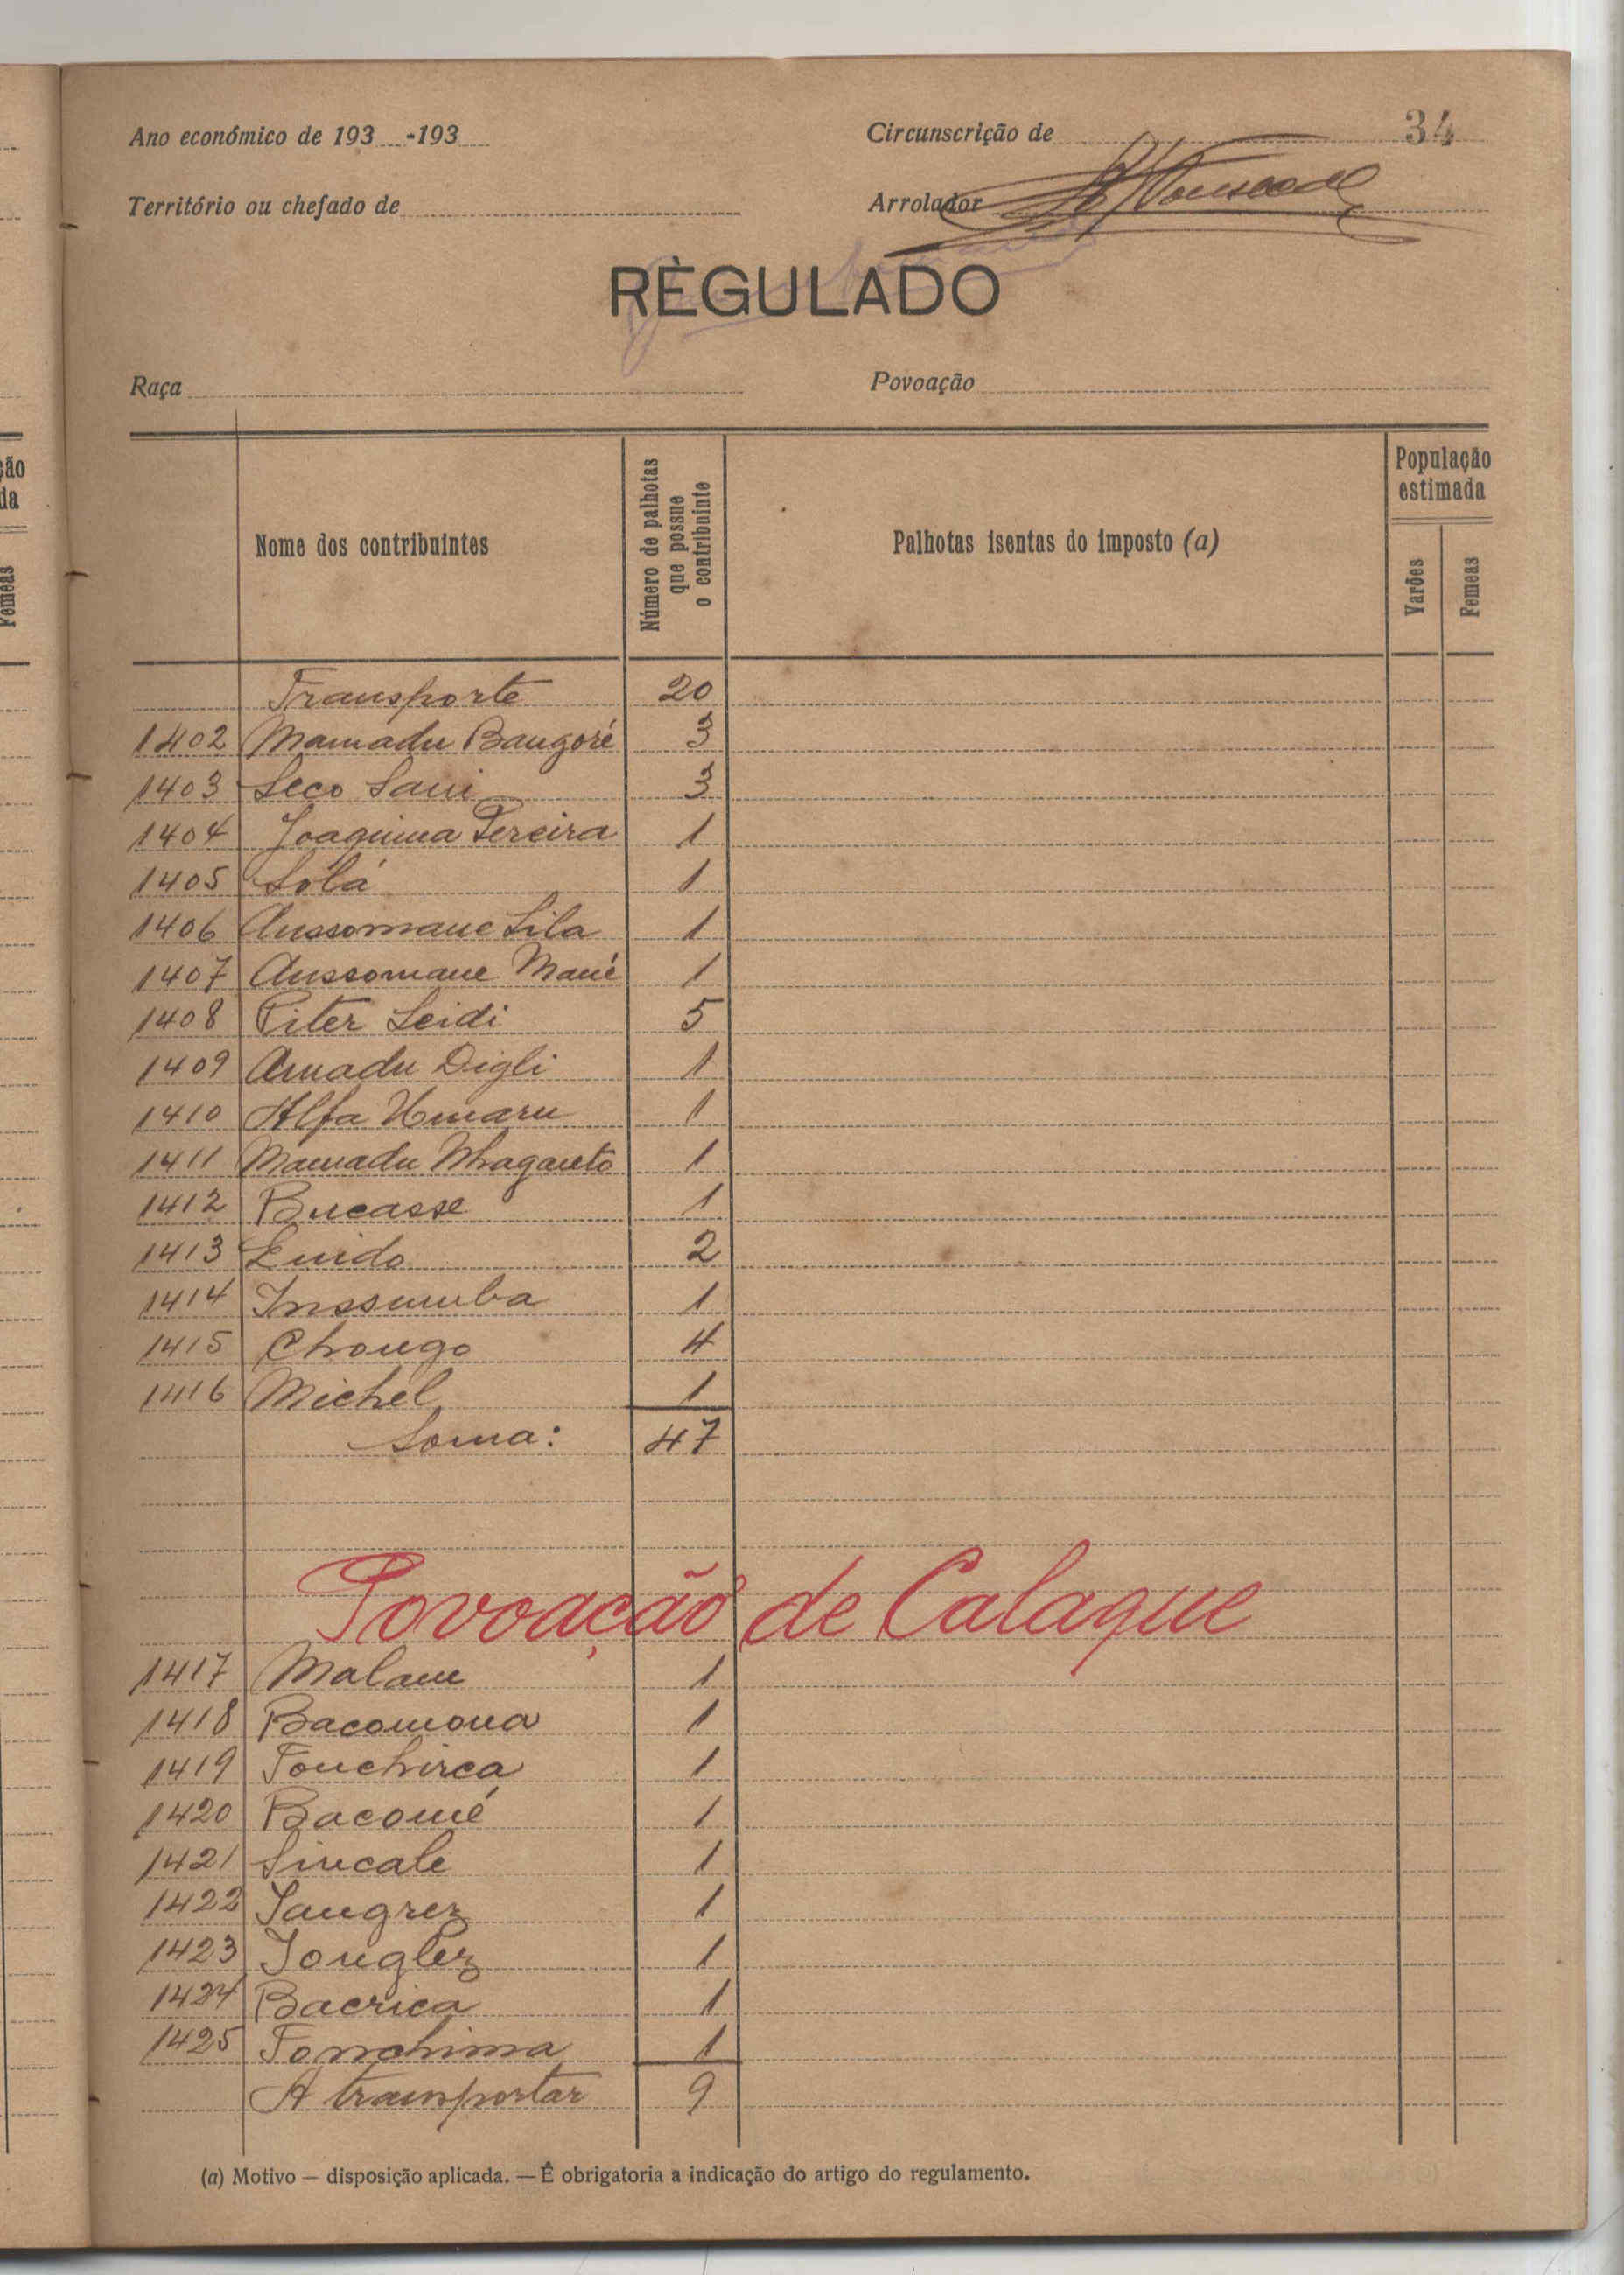 Ano económico de 193 -193
Circunscrição de 34
Território ou chefado de
Arrolador
REGULADO
Raça
Povoação
Nome dos contribuintes
Número de palhotas que possue o contribuinte
Palhotas isentas do imposto (a)
População estimada
Varões
Femeas
Transporte 20
1402 Mamadu Bangoré 3
1403 Seco Sani 3
1404 Joaquima Pereira 1
1405 Sólá 1
1406 Aussomane Sila 1
1407 Aussomane Mané 1
1408 Piter Seidi 5
1409 Amadu Digli 1
1410 Alfa Umaru 1
1411 Mamadu Maganto 1
1412 Bucasse 1
1413 Luido 2
1414 Inssumba 1
1415 Chongo 4
1416 Michel 1
Soma: 47
Povoação de Calaque
1417 Malam 1
1418 Bacomona 1
1419 Tonchirca 1
1420 Bacomé 1
1421 Sincale 1
1422 Sangrez 1
1423 Jonglez 1
1424 Bacrica 1
1425 Tonchima 1
A transportar 9
(a) Motivo — disposição aplicada. — É obrigatoria a indicação do artigo do regulamento.
ção
da
Femeas